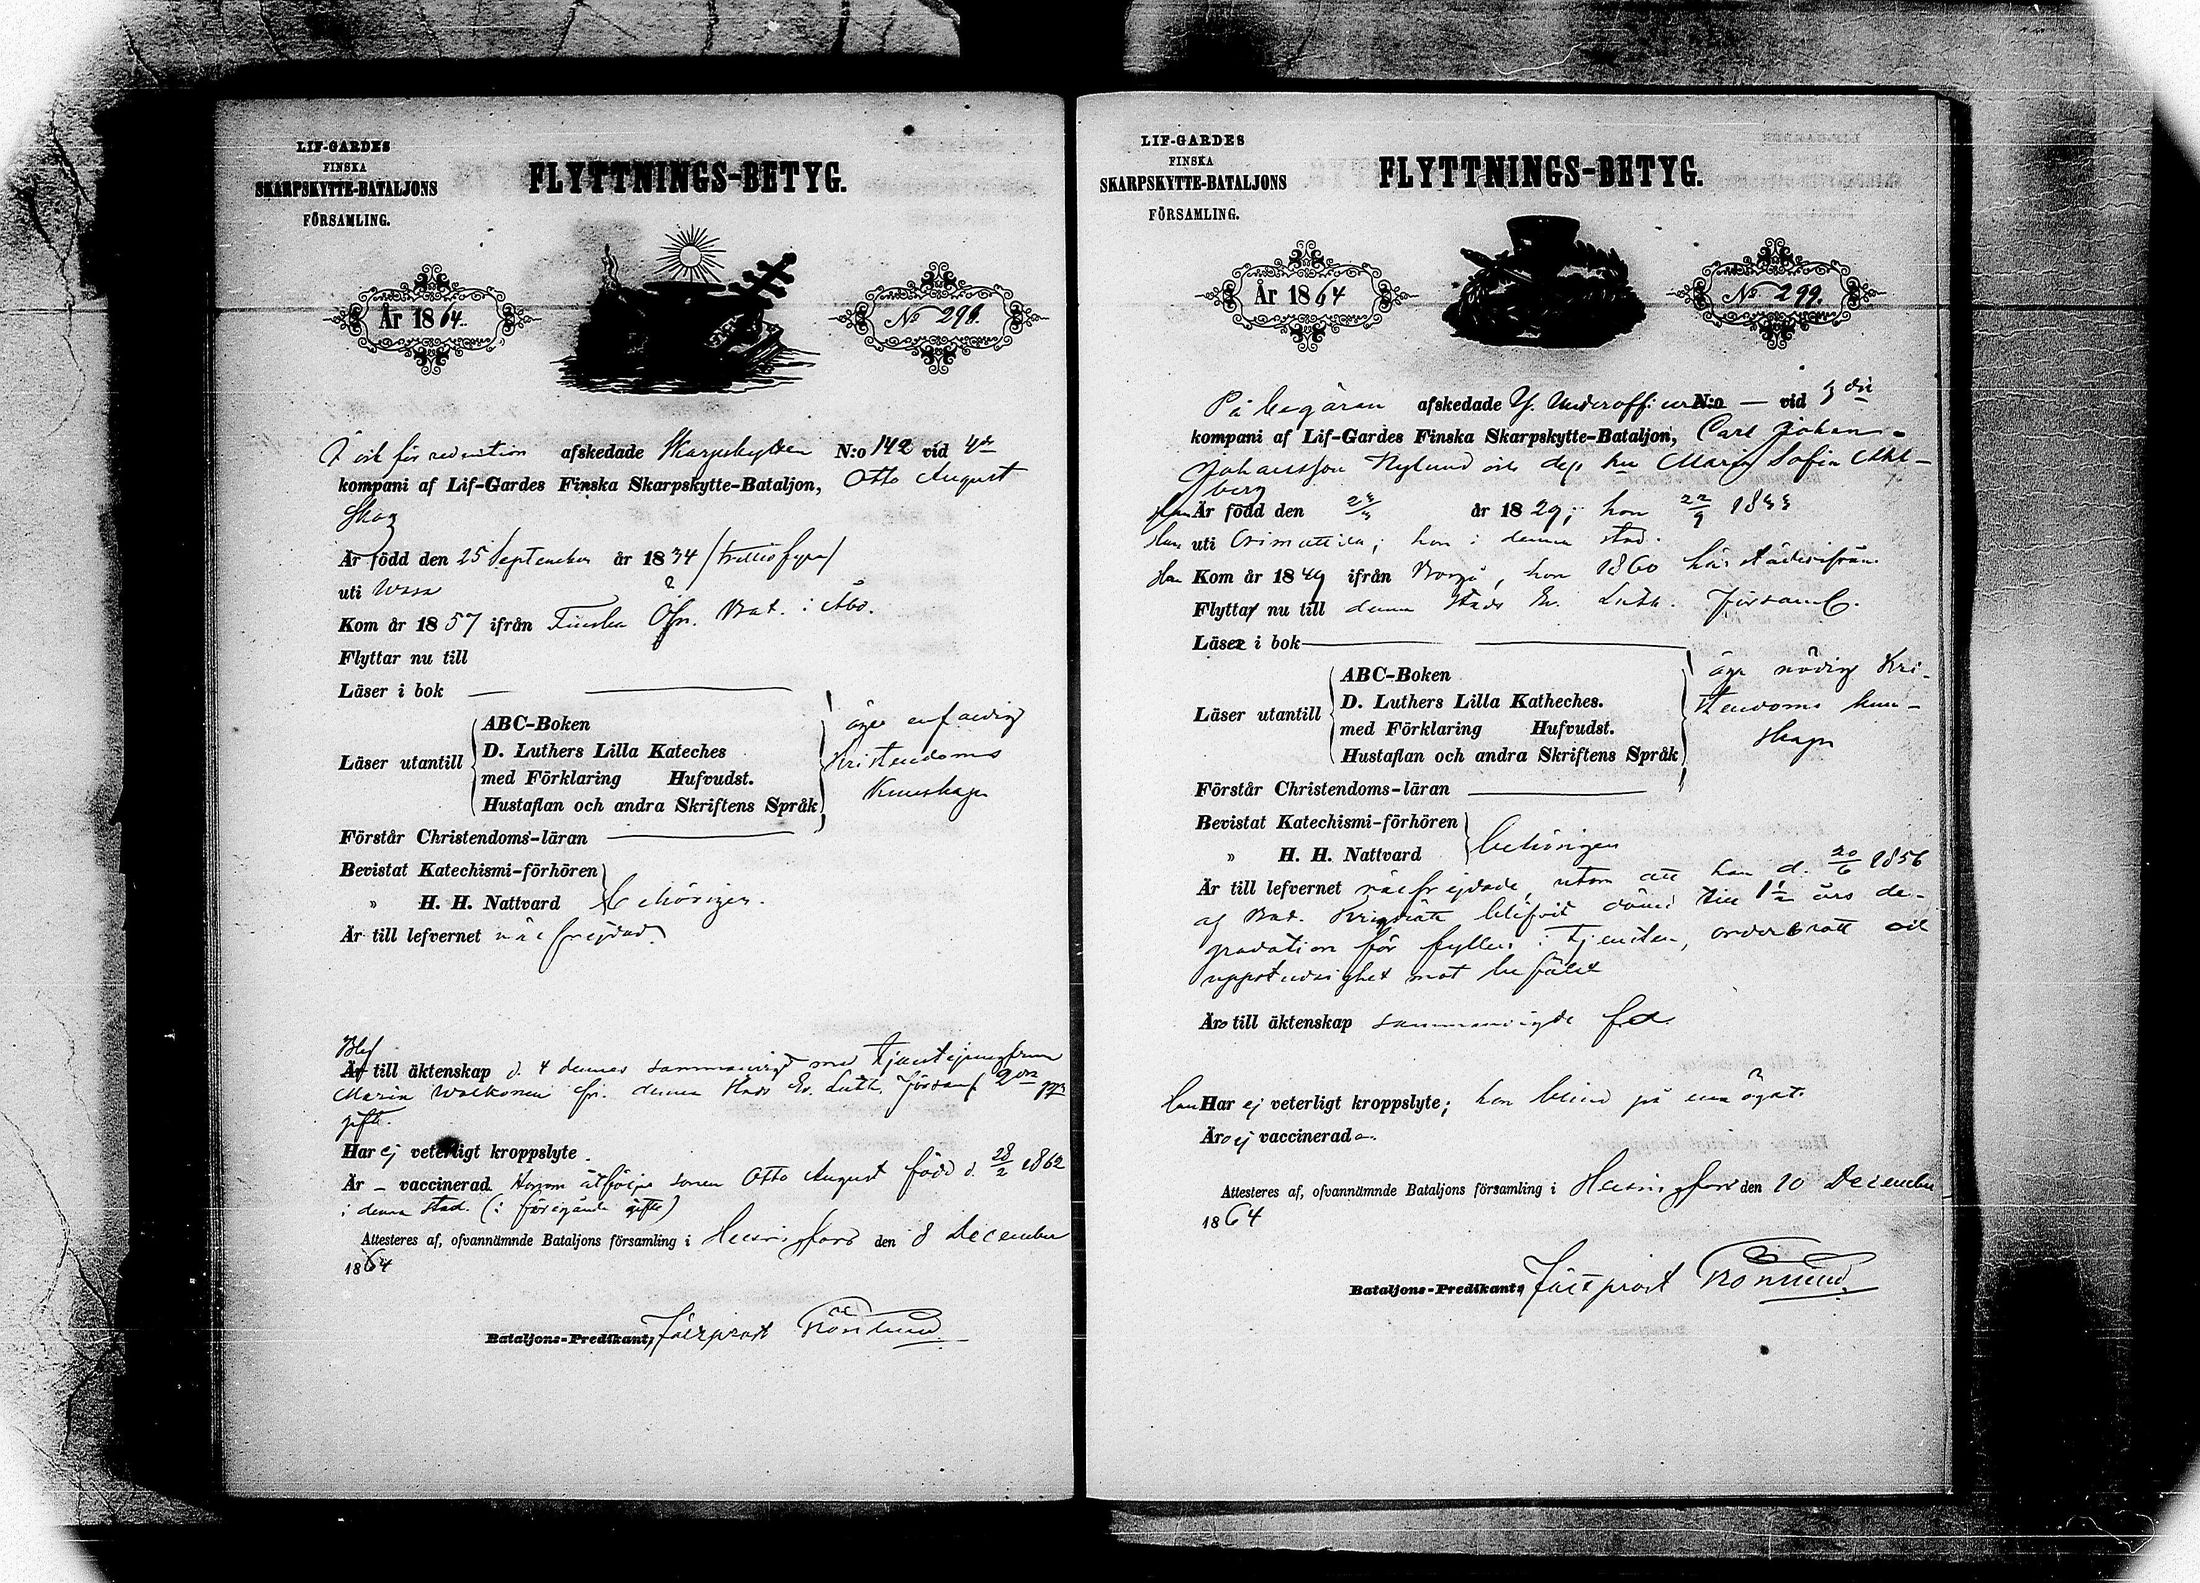 LIF-GARDES
FINSKA
SKARPSKYTTE-BATALJONS
FÖRSAMLING.
FLYTTNINGS-BETYG.
År 1864.
No 298.
för redution afskedade Skarpskytten N:o 142 vid 4de
kompani af Lif-Gardes Finska Skarpskytte-Bataljon, Otto August
Skog
Är född den 25 September år 1834 /trettiofyra/
uti Wasa
Kom år 1857 ifrån Finska Bat. i Åbo.
Flyttar nu till
Läser i bok
Läser utantill
ABC-Boken
D. Luthers Lilla Kateches
med Förklaring Hufvudst.
Hustaflan och andra Skriftens Språk
äger enfaldig
Kristendoms
Kunskap
Förstår Christendoms-läran
Bevistat Katechismi-förhören
» H. H. Nattvard
behörigen.
Är till lefvernet välfrejdad.
Blef
Är till äktenskap d. 4 dennes sammanvigd med tjenstejungfrun
Maria Walkonen fr. denna Stads Ev. Luth. Församl.
gifte.
Har ej veterligt kroppslyte.
Är – vaccinerad. Honom åtföljer sonen Otto August född d. 28/2 1862
i denna stad. (i föregående gifte)
Attesteres af, ofvannämnde Bataljons församling i Helsingfors den 8 December
1864
Bataljons-Predikant, Fältprost Rönnlund.
LIF-GARDES
FINSKA
SKARPSKYTTE-BATALJONS
FÖRSAMLING.
FLYTTNINGS-BETYG.
År 1864
No 299.
På begäran afskedade Y. Underofficer N:o — vid 3die
kompani af Lif-Gardes Finska Skarpskytte-Bataljon, Carl Johan
Johansson Nylund och dess hu Maria Sofia Ahl-
berg
han Är född den år 1829; hon 22/9 1833
Han uti Orimattila; hon i denna stad.
Han Kom år 1849 ifrån Borgå, hon 1860 härstädesifrån
Flytta nu till denna Stads Ev. Luth. Församl.
Läser i bok
Läser utantill
ABC-Boken
D. Luthers Lilla Katheches.
med Förklaring Hufvudst.
Hustaflan och andra Skriftens Språk
äga nödig Kri-
stendoms kun-
skap
Förstår Christendoms-läran
Bevistat Katechismi-förhören
» H. H. Nattvard
behörigen
Är till lefvernet välfrejdade, utom att han d. 20/6 1856
af Bat. Krigsrätt blifvit dömd till 1 1/2 års de-
gradation för fylleri i tjensten, orderbrott och
uppstudsighet mot befälet
Äro till äktenskap sammanvigde
han Har ej veterligt kroppslyte; hon blind på ena ögat.
Äro ej vaccinerade.
Attesteres af, ofvannämnde Bataljons församling i Helsingfors den 10 December
1864
Bataljons-Predikant, Fältprost Rönnlund.